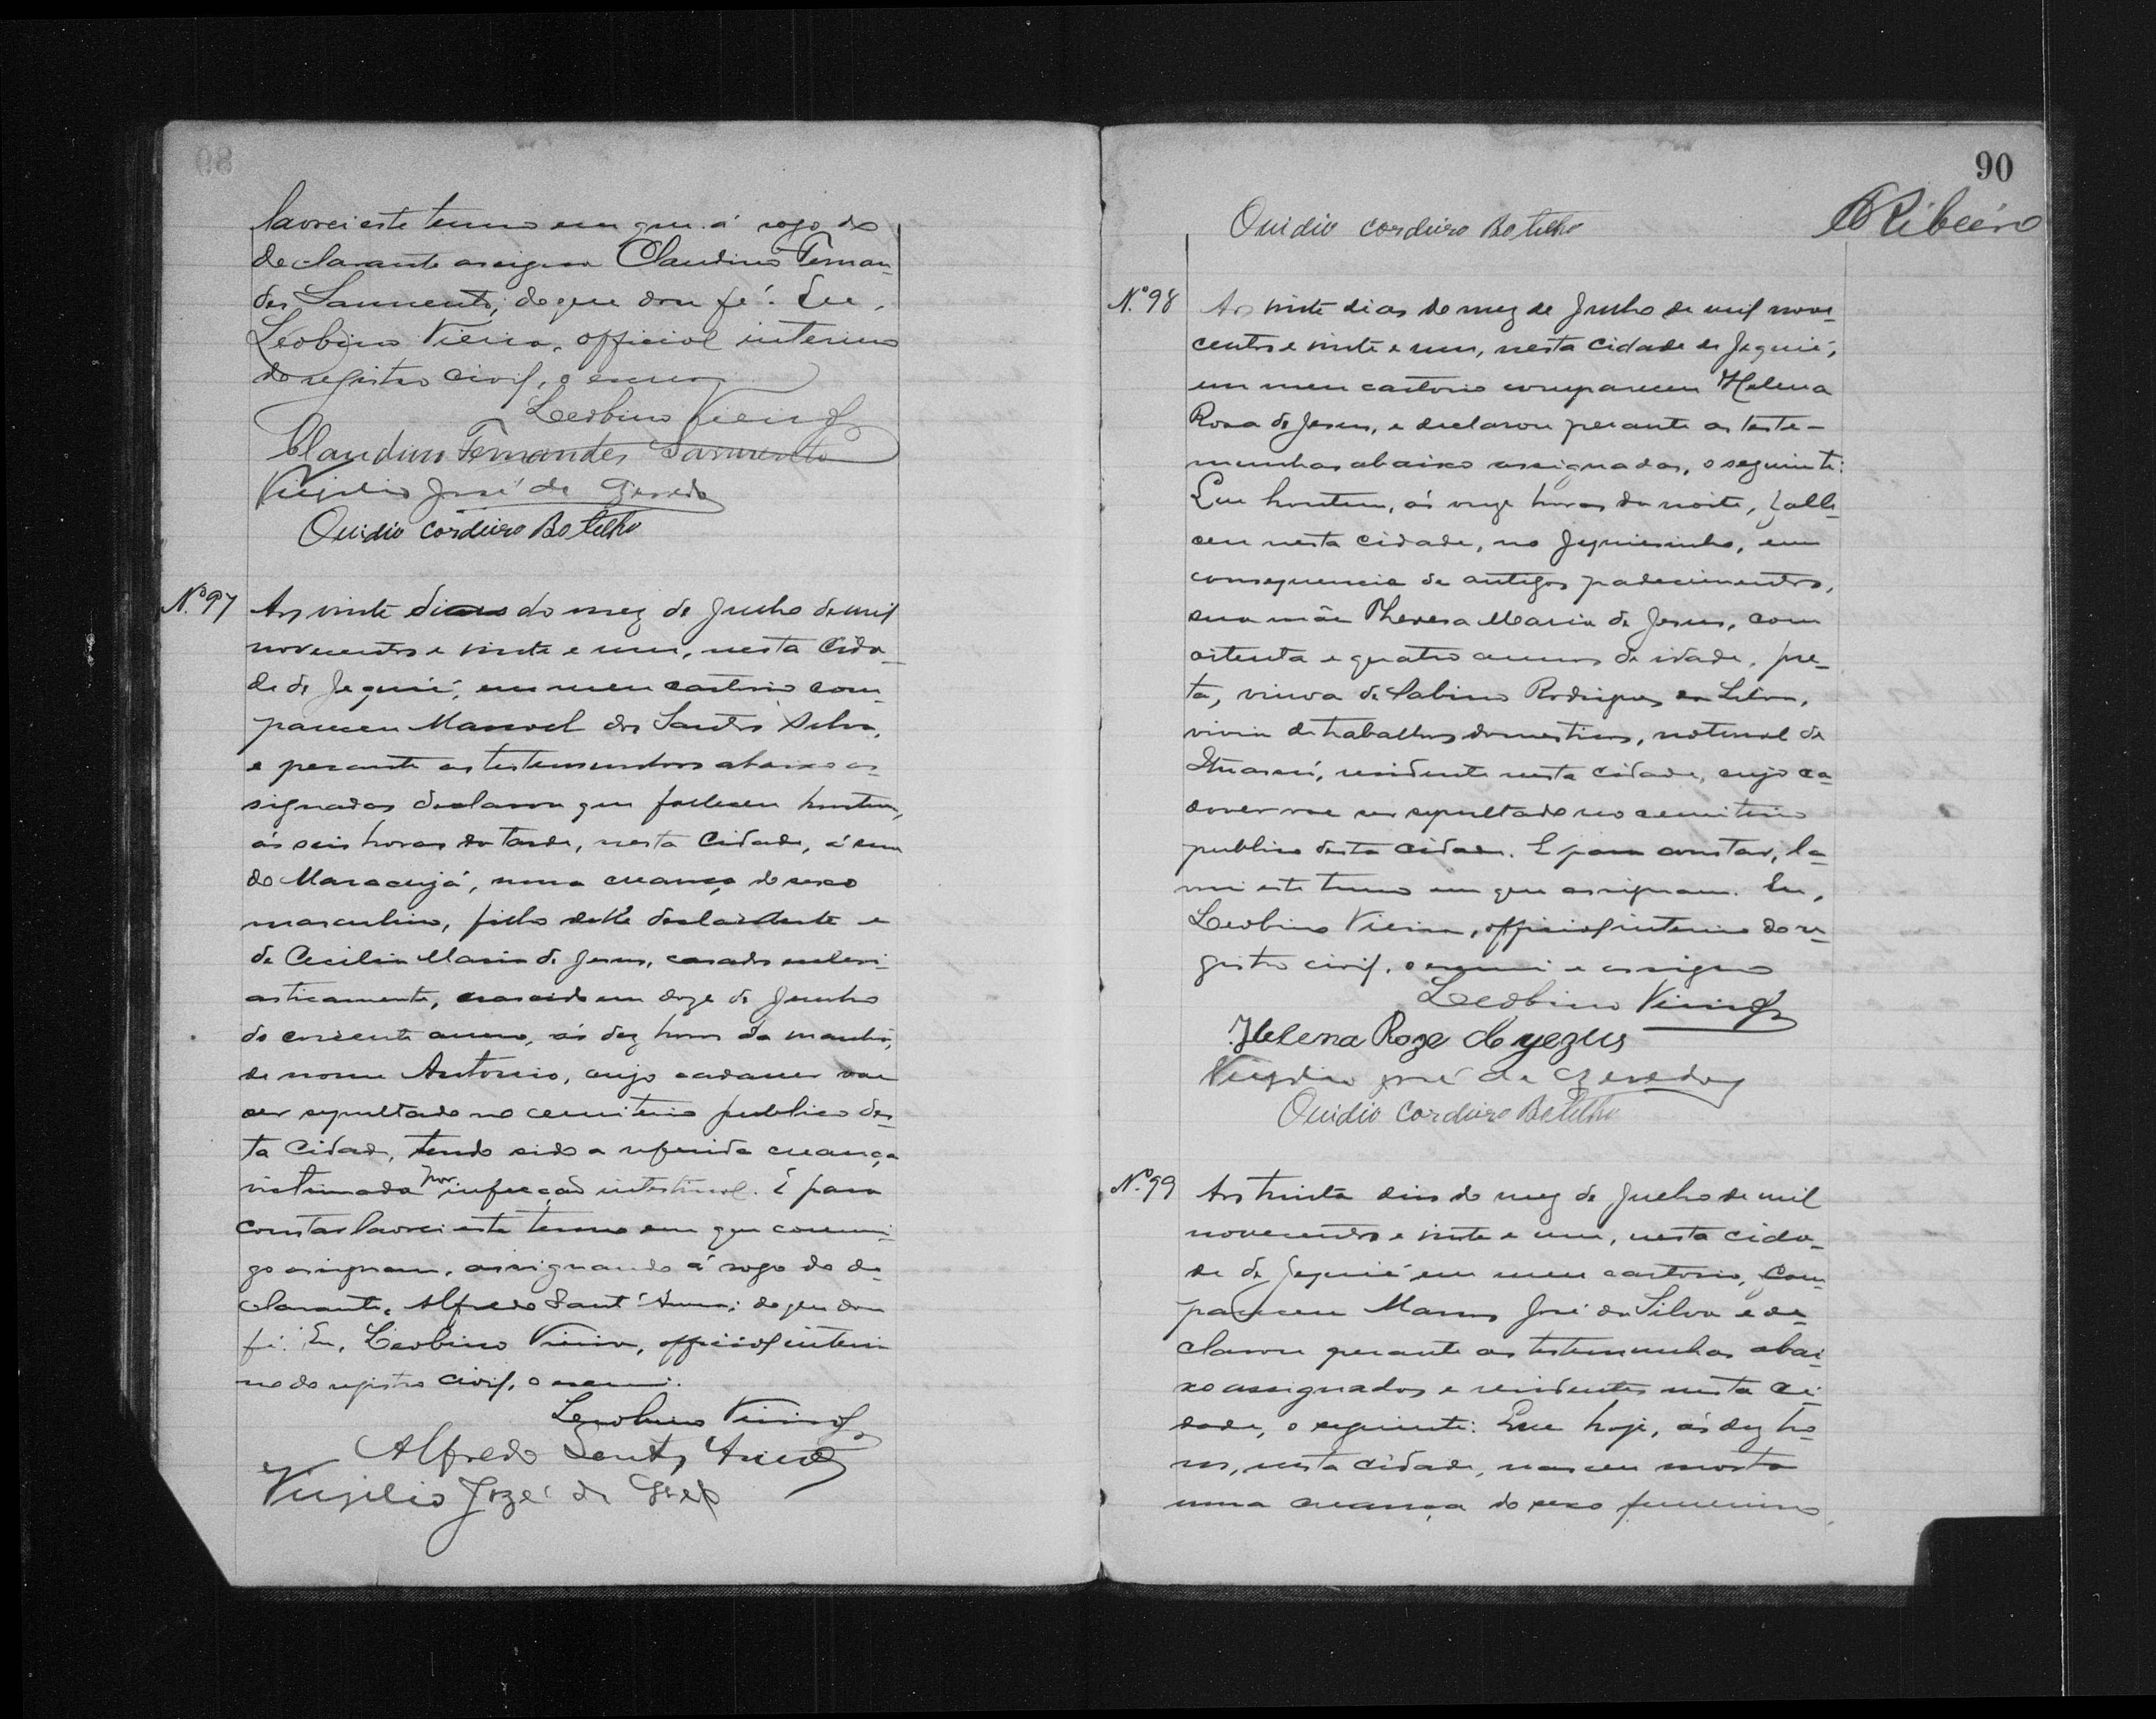 lavrei este termo em que á rogo do
declarante assigna Claudino Fernan-
des Sarmento; do que dou fé. Eu,
Leobino Vieira, official interino
do registro civil, o escrevi
Leobino Vieira
Claudino Fernandes Sarmento
Virgilio José de
Ouidio Cordeiro Botelho
Nº 97 Aos vinte dias do mez de Junho de mil
novecentos e vinte e um, nesta Cida-
de de Jequié, em meu cartorio com-
pareceu Manoel dos Santos Silva,
e perante as testemunhas abaixo as-
signadas declarou que falleceu hontem,
ás seis horas da tarde, nesta Cidade, á rua
do Maracujá, uma creança do sexo
masculino, filho delle declarante e
de Cecilia Maria de Jesus, casados eclesi-
asticamente, nascido em doze de Junho
do corrente anno, ás dez horas da manhã,
de nome Antonio, cujo cadaver vae
ser sepultado no cemiterio publico des-
ta Cidade, tendo sido a referida creança
victimada por infecção intestinal. E para
constar lavrei este termo em que commi-
go assignam, assignando á rogo do de-
clarante, Alfredo Sant'Anna; do que dou
fé. Eu, Leobino Vieira, official interi-
no do registro civil, o escrevi.
Leobino Vieira
Alfredo Santa Anna
Virgilio Jozé de
90
Ribeiro
Ouidio Cordeiro Botelho
Nº 98 Aos vinte dias do mez de Junho de mil nove-
centos e vinte e um, nesta Cidade de Jequié,
em meu cartorio compareceu Helena
Rosa de Jesus, e declarou perante as teste-
munhas abaixo assignadas, o seguinte:
Que hontem, ás onze horas da noite, falle-
ceu nesta cidade, no Jequiesinho, em
consequencia de antigos padecimentos,
sua mãe Thereza Maria de Jesus, com
oitenta e quatro annos de idade, pre-
ta, viuva de Sabino Rodrigues da Silva,
vivia de trabalhos domesticos, natural de
residente nesta cidade, cujo ca-
daver vae ser sepultado no cemiterio
publico desta cidade. E para constar, la-
vrei este termo em que assignam. Eu,
Leobino Vieira, official interino do re-
gistro civil, o escrevi e assigno
Leobino Vieira
Helena Roze de yezus
Virgilio José de
Ouidio Cordeiro Botelho
Nº 99 Aos trinta dias do mez de Julho de mil
novecentos e vinte e um, nesta cida-
de de Jequié em meu cartorio, com-
pareceu José da Silva e de-
clarou perante as testemunhas abai-
xo assignadas e residentes nesta ci-
dade, o seguinte: Que hoje, ás dez ho-
ras, nesta cidade, nasceu morta
uma creança do sexo feminino,